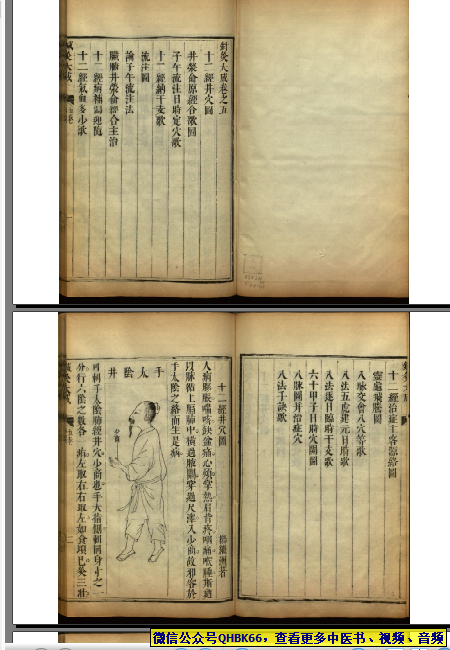 針灸大成卷之五
十二經井穴圖
井滎俞原經合歌圖
子午流注日時定穴歌
十二經納干支歌
流注圖
論子午流注法
臟腑井滎俞經合主治
十二經病補瀉迎隨
十二經氣血多少歌
十二經治症主客原絡圖
靈龜飛騰圖
八脉交會八穴等歌
八法五虎建元日時歌
八法逐日臨時干支歌
六十甲子日時穴開圖
八脉圖并治症穴
八法手訣歌
十二經井穴圖 楊繼洲著
人病膨脹喘咳缺盆痛心煩掌熱肩背疼咽痛喉腫斯廼
以脉循上膈肺中橫過腋關穿過尺澤入少商故邪客於
手太陰之絡而生是病
手太陰井
少商
可刺手太陰肺經井穴少商也手大指側刺同身寸之一
分行六陰之數各一痏左取右右取左如食頃巳灸三壯
微信公众号QHBK66，查看更多中医书、视频、音频